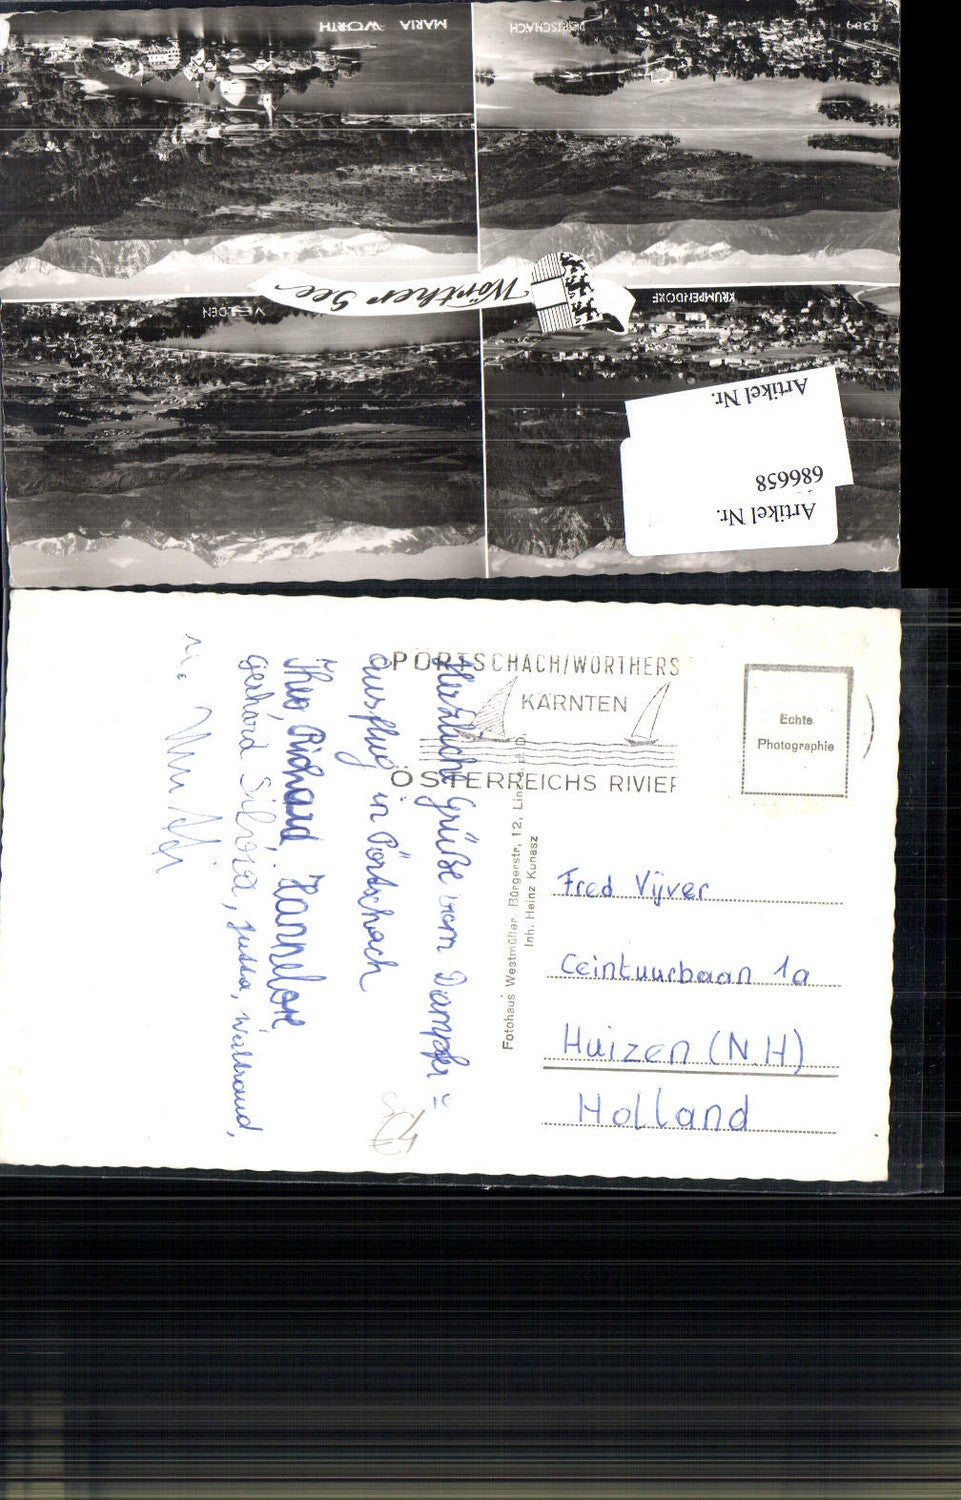 MARIA WÖRTH
PÖRTSCHACH
Wörther See
VELDEN
KRUMPENDORF
Artikel Nr.
686658
Artikel Nr.
PÖRTSCHACH/WÖRTHERS
KÄRNTEN
ÖSTERREICHS RIVIER
Echte
Photographie
Herzliche Grüße vom Dampfer-
ausflug in Pörtschach
Theo, Richard, Hannelore,
Gerhard, Silvia, Jutta, Waltraud,
Fotohaus Westmüller, Bürgerstr. 12, Linz a. D.
Inh. Heinz Kunasz
Fred Vijver
Ceintuurbaan 1a
Huizen (N.H)
Holland